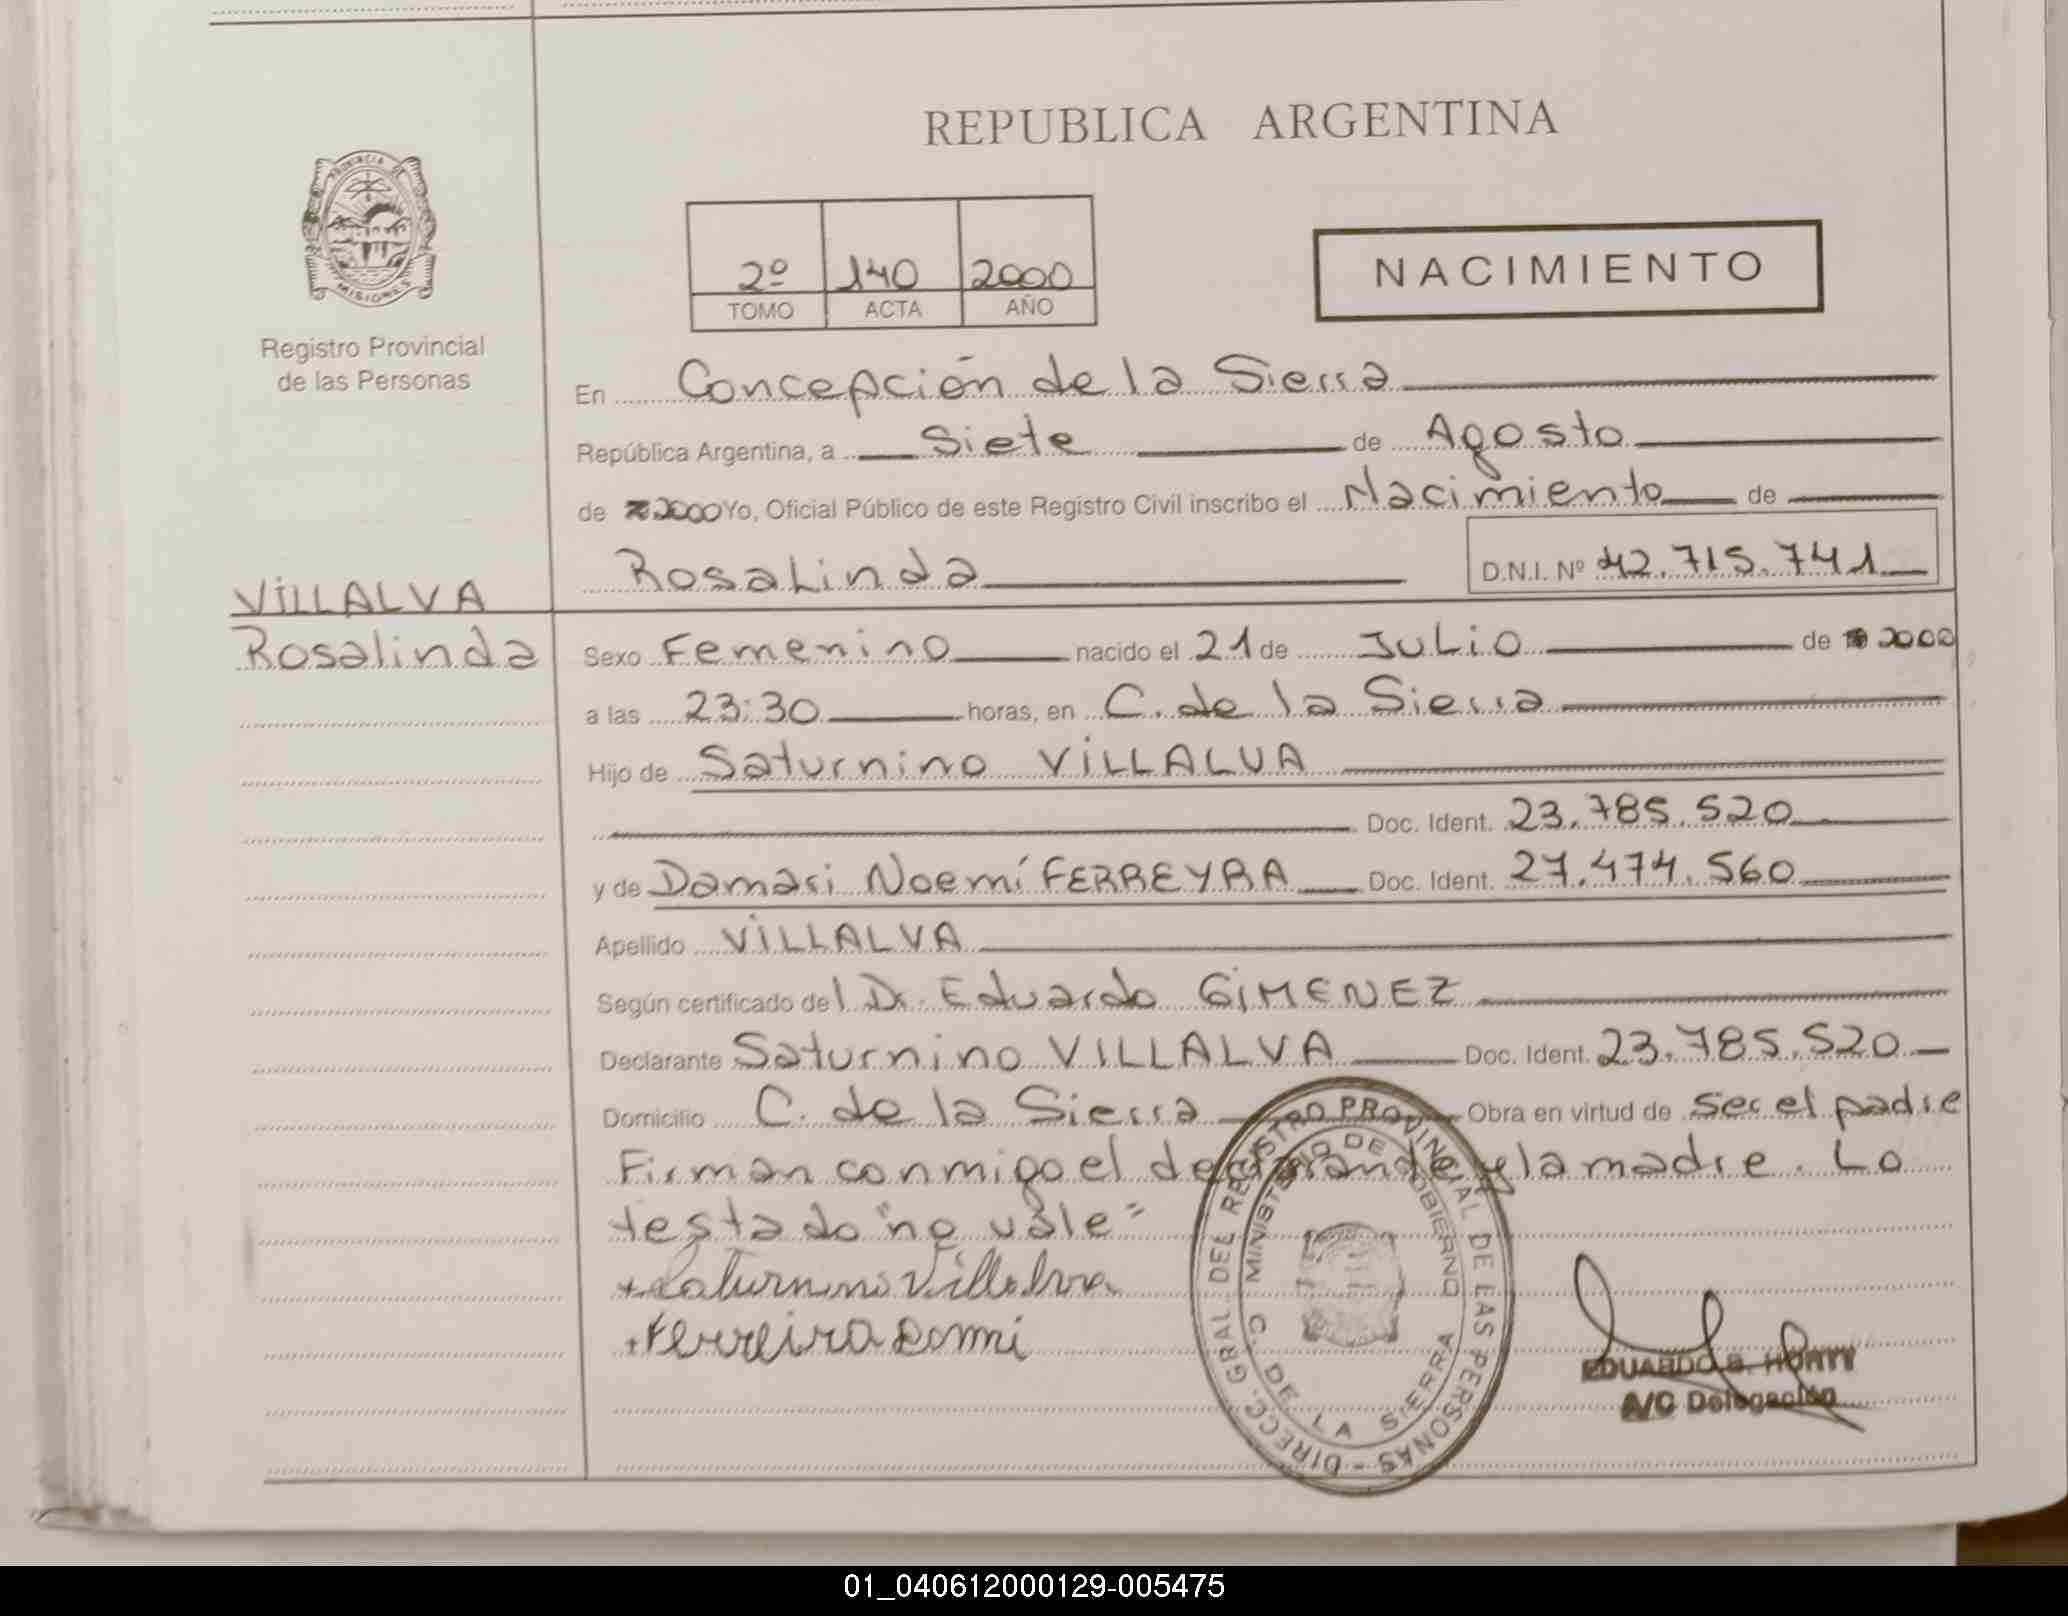 REPUBLICA ARGENTINA
PROVINCIA DE
MISIONES
Registro Provincial
de las Personas
2º 140 2000
TOMO ACTA AÑO
NACIMIENTO
En Concepción de la Sierra
República Argentina, a Siete de Agosto
de 2000 Yo, Oficial Público de este Registro Civil inscribo el Nacimiento de
Rosalinda D.N.I. Nº 42.715.741
VILLALVA
Rosalinda
Sexo Femenino nacido el 21 de Julio de 2000
a las 23:30 horas, en C. de la Sierra
Hijo de Saturnino VILLALVA
Doc. Ident. 23.785.520
y de Damasi Noemí FERREYRA Doc. Ident. 27.474.560
Apellido VILLALVA
Según certificado del Dr. Eduardo GIMENEZ
Declarante Saturnino VILLALVA Doc. Ident. 23.785.520
Domicilio C. de la Sierra Obra en virtud de ser el padre
Firman conmigo el declarande y la madre. Lo
testado "no vale"
+ Saturnino Villalva
+ Ferreira Domi
DIRECC. GRAL. DEL REGISTRO PROVINCIAL DE LAS PERSONAS -
MINISTERIO DE GOBIERNO
C. DE LA SIERRA
EDUARDO B. HORTT
A/C Delegación
01_040612000129-005475